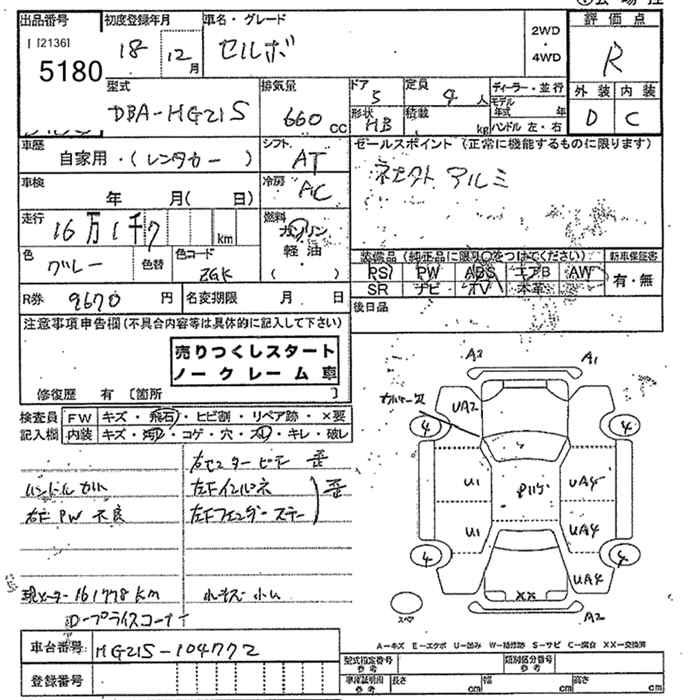 出品番号
[ [2136]
5180
初度登録年月
18 12月
車名・グレード
セルボ
2WD
・
4WD
評価点
R
外装 内装
D C
型式
DBA-HG21S
排気量
660 CC
ドア
5
形状
HB
定員
4 人
積載
kg
ディーラー・並行
モデル年式 年
ハンドル 左・右
車歴
自家用・(レンタカー )
シフト
AT
セールスポイント (正常に機能するものに限ります)
アルミ
車検
年 月( 日)
冷房
AC
走行
16万1千7 km
燃料
ガソリン
軽油
( )
色
グレー
色替
色コード
ZGK
装備品 (純正品に限り○をつけてください)
PS PW ABS エアB AW
SR ナビ TV 本革
新車保証書
有・無
R券 9670 円
名変期限 月 日
後日品
注意事項申告欄 (不具合内容等は具体的に記入して下さい)
売りつくしスタート
ノークレーム車
修復歴 有 [箇所
検査員
記入欄
FW キズ・飛石・ヒビ割・リペア跡・×要
内装 キズ・汚れ・コゲ・穴・スレ・キレ・破し
右センターピラー 歪
左Fインパネ
歪
右F PW 不良
左Fフェンダーステー
現メーター 161778km
D-プライスコーナー
A3 A1
UA2
4 4
U1 UA4
U1 UA4
4 4
UA4
XX
スペア
A2
A-キズ E-エクボ U-凹み W-補修跡 S-サビ C-腐食 XX-交換済
車台番号 HG21S-104772
登録番号
型式指定番号
参考
類別区分番号
参考
車庫証明用
参考
長さ cm 幅 cm 高さ cm